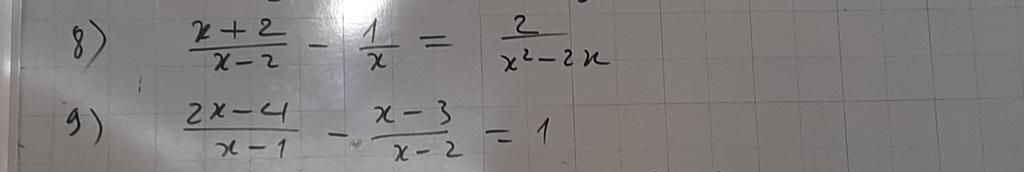 8) (x+2)/(x-2) - 1/x = 2/(x²-2x)
9) (2x-4)/(x-1) - (x-3)/(x-2) = 1